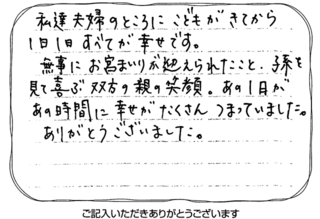 私達夫婦のところに こどもがきてから
1日1日 すべてが幸せです。
無事に お宮まいりが迎えられたこと、子孫を
見て喜ぶ 双方の親の笑顔。あの1日が
あの時間に 幸せが たくさん つまっていました。
ありがとうございました。
ご記入いただきありがとうございます